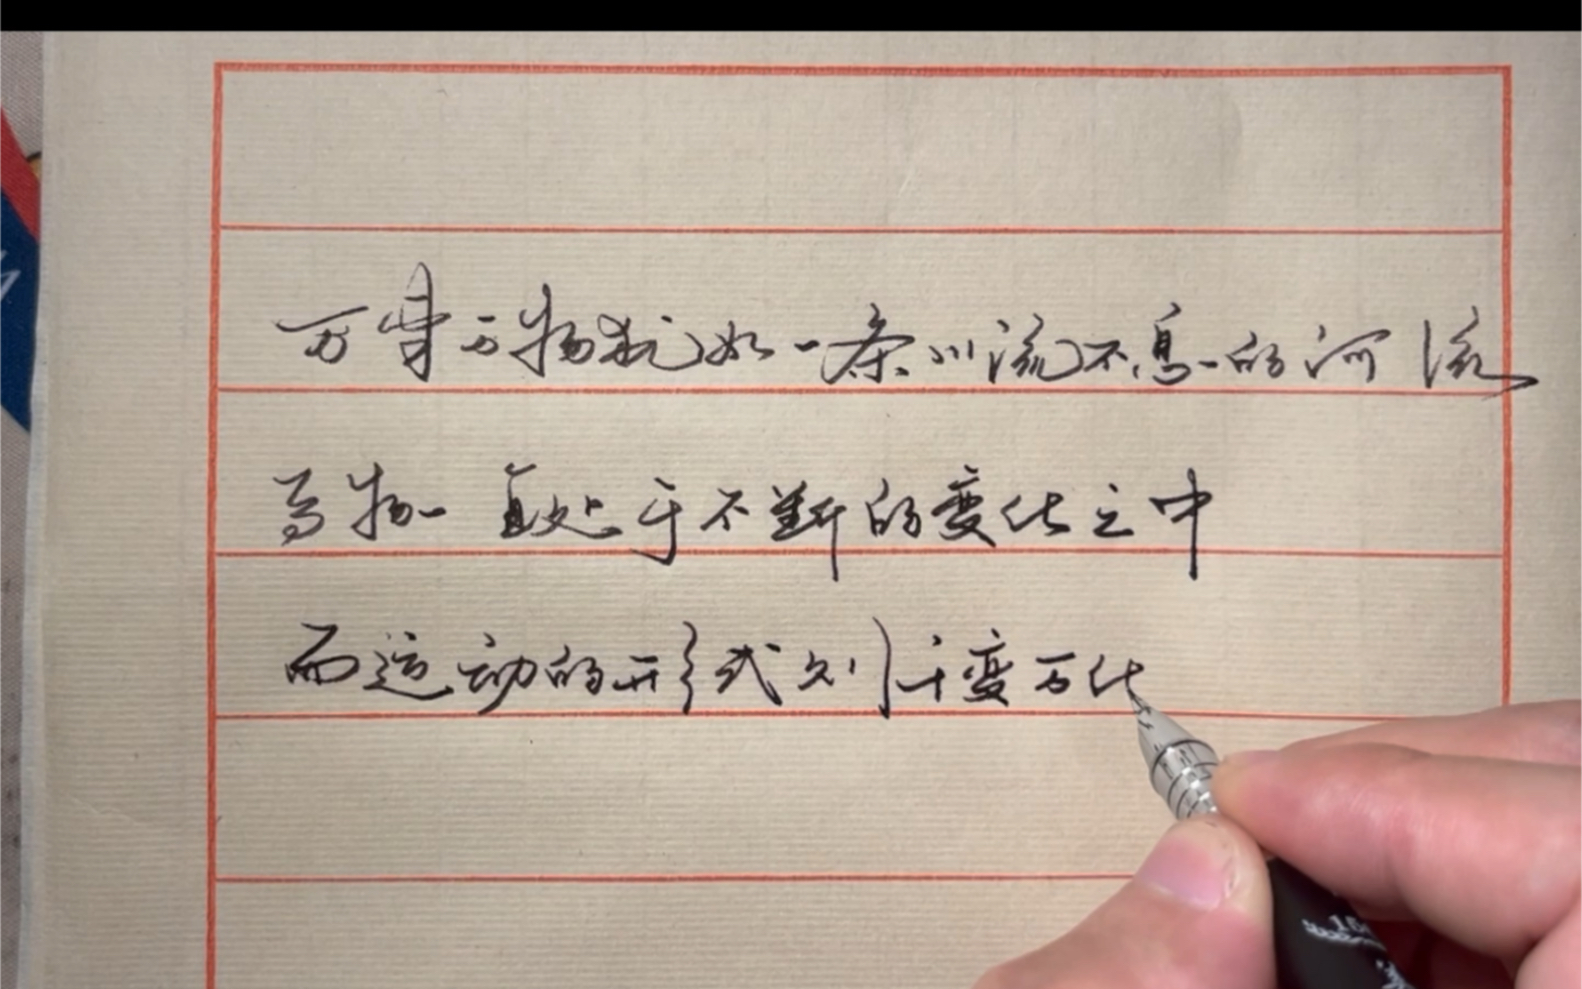 万事万物犹如一条川流不息的河流
万物一直处于不断的变化之中
而运动的形式则千变万化